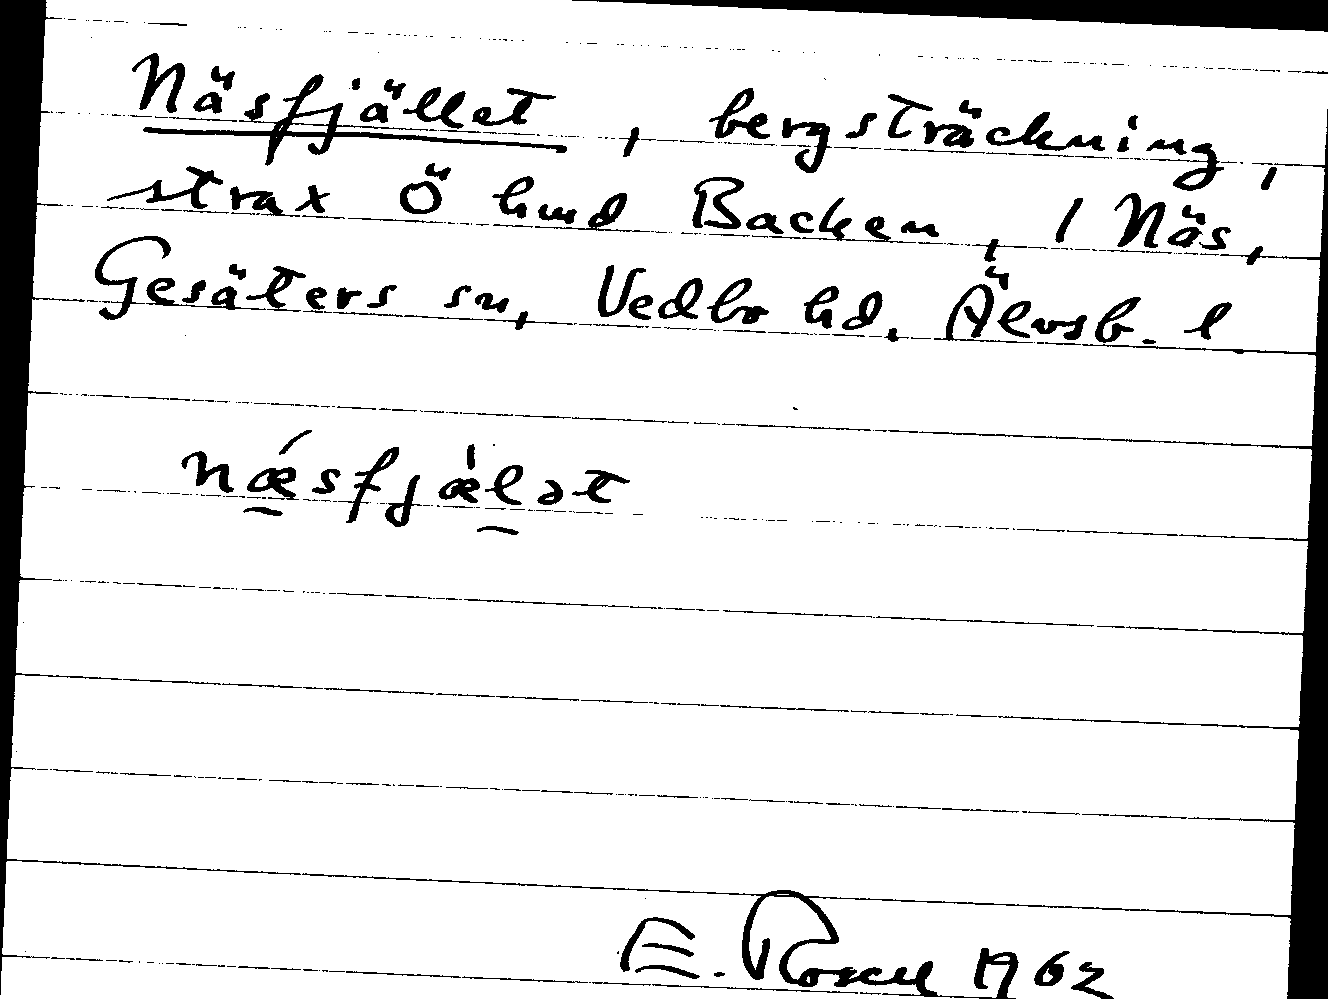 Näsfjället, bergsträckning,
strax Ö hmd Backen, 1 Näs,
Gesäters sn, Vedbo hd. Älvsb. l
nǽ̱sfjæ̀ḻət
E. Rosell 1962